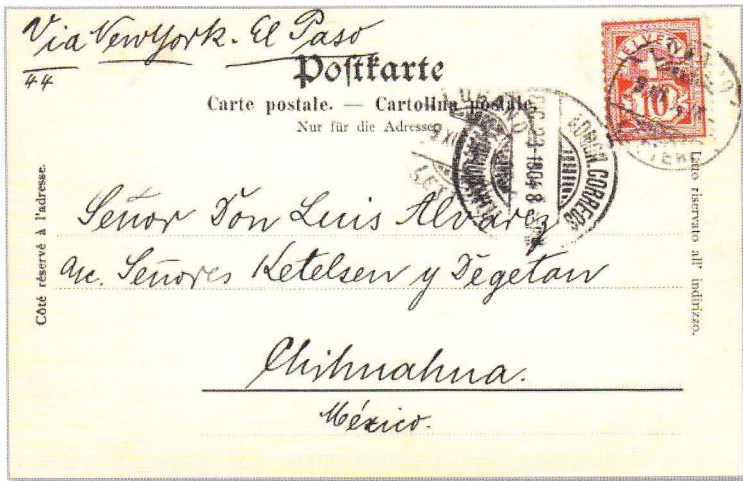 Via New York - El Paso
44
Postkarte
Carte postale. — Cartolina postale.
Nur für die Adresse.
HELVETIA
10
LUGANO
LUGANO
9 XII
DIC 23 1904 8
ADMON. CORREOS
CHIHUAHUA
LETTERE
Côté réservé à l'adresse.
Lato riservato all' indirizzo.
Señor Don Luis Alvarez
ac. Señores Ketelsen y Degetau
Chihuahua.
México.